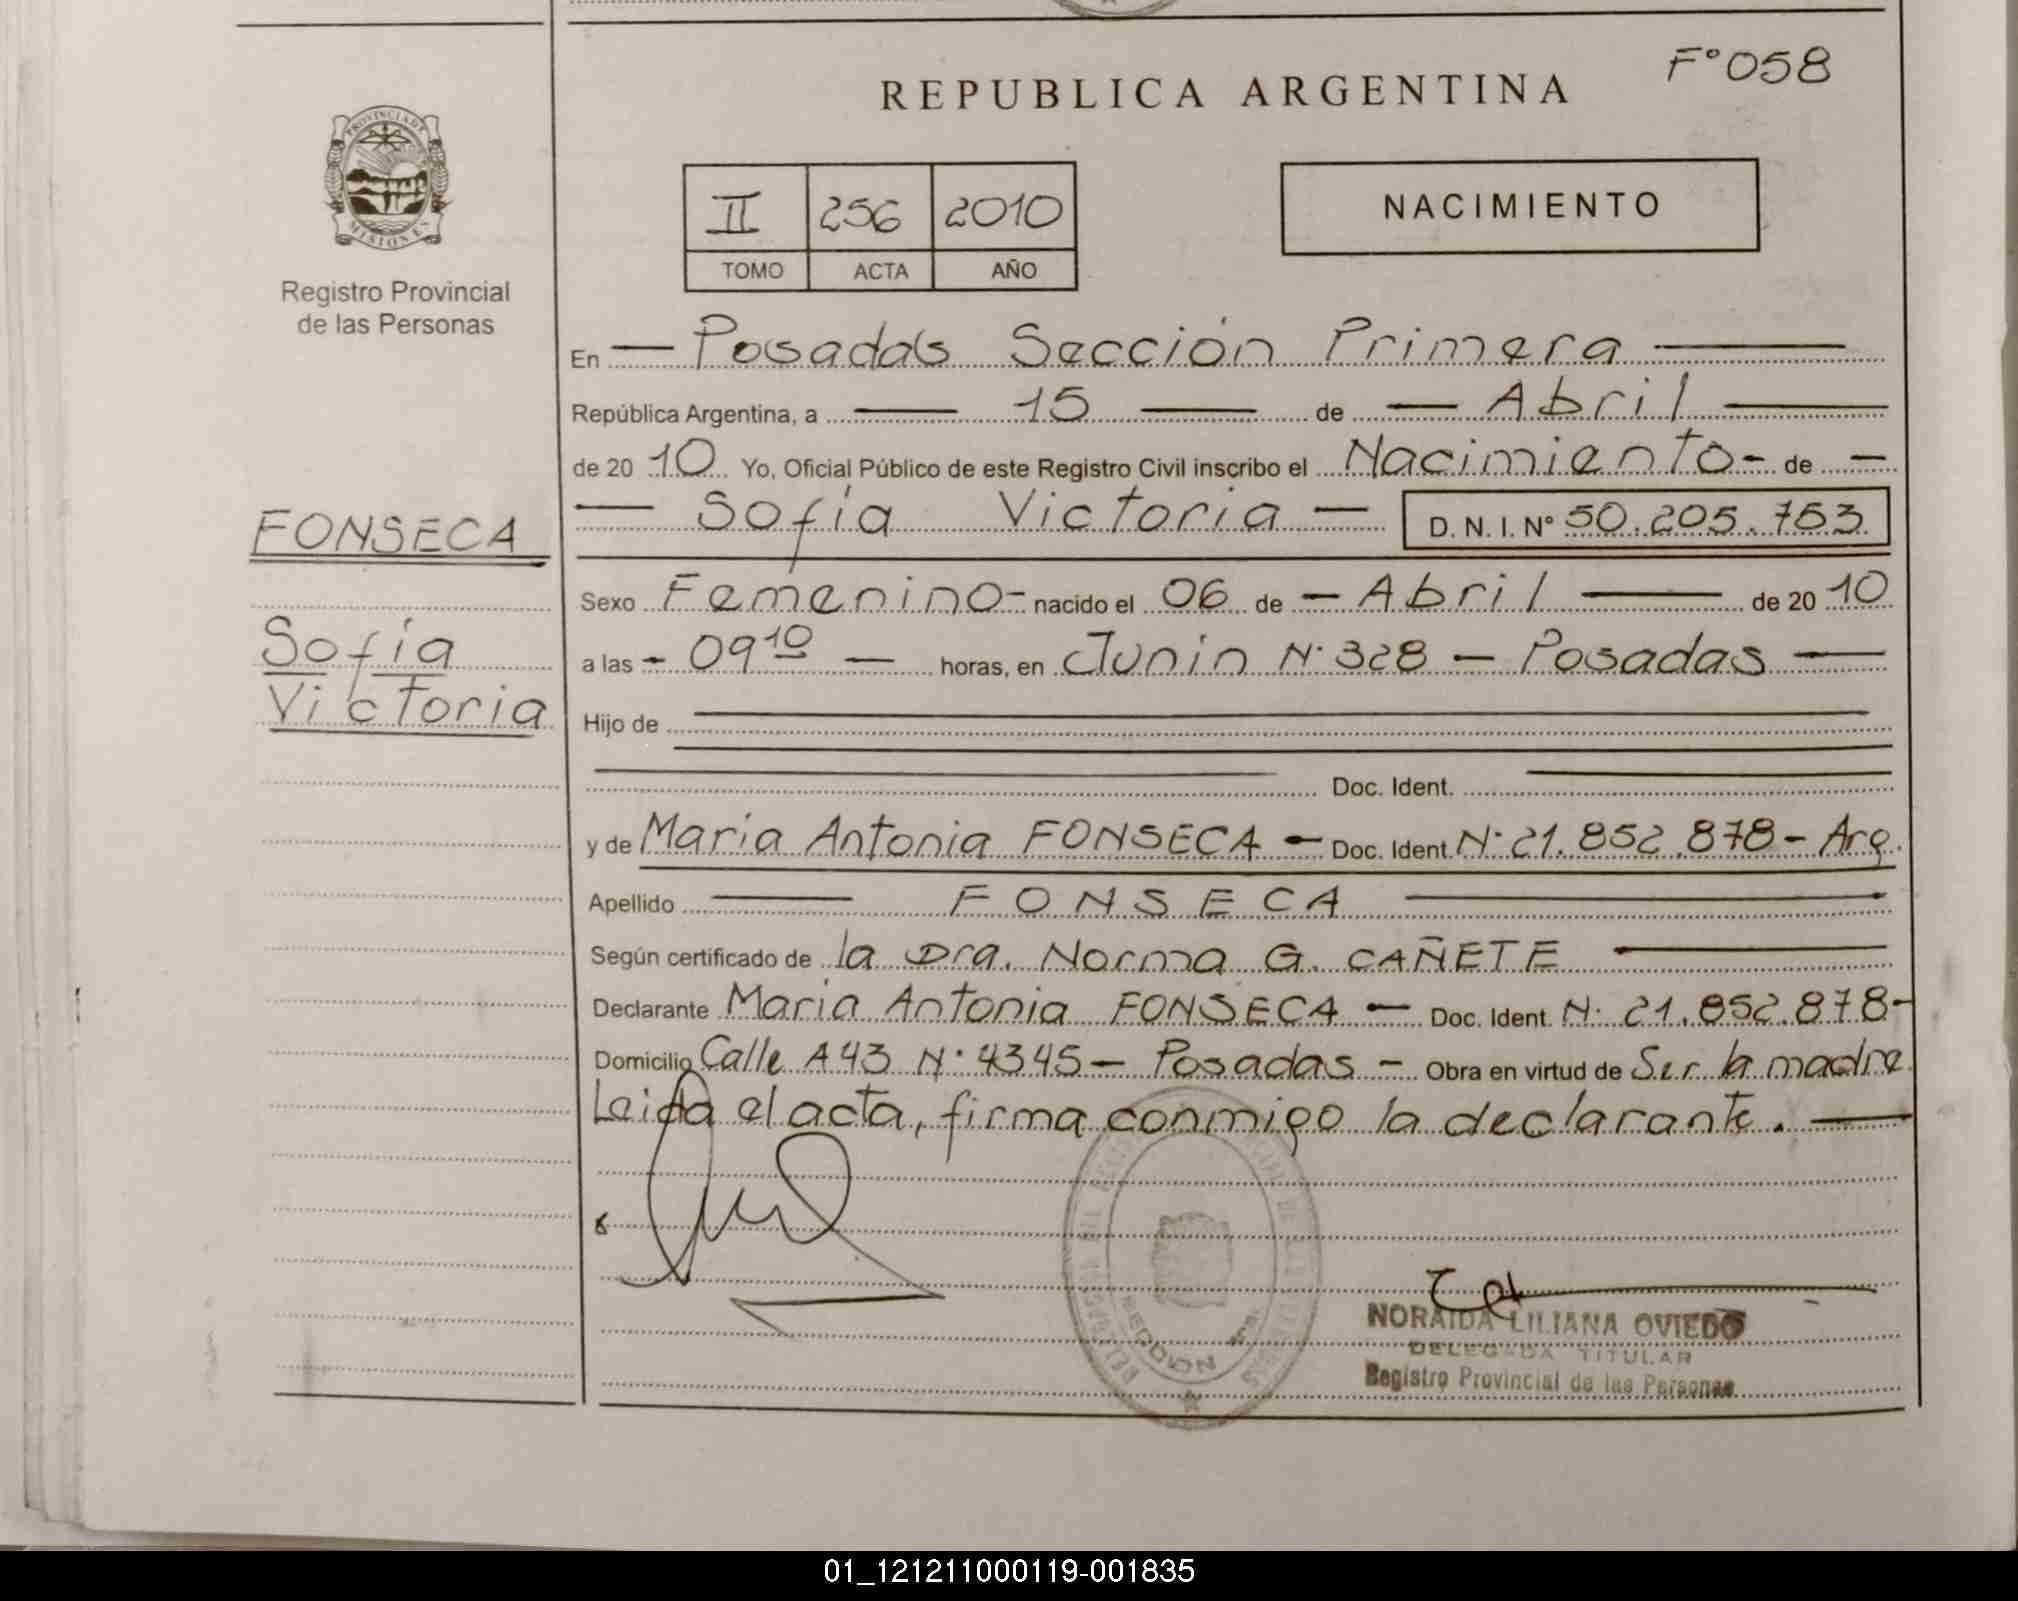 F° 058
REPUBLICA ARGENTINA
PROVINCIA DE
MISIONES
Registro Provincial
de las Personas
II 256 2010
TOMO ACTA AÑO
NACIMIENTO
En — Posadas Sección Primera —
República Argentina, a — 15 — de — Abril —
de 20 10 Yo, Oficial Público de este Registro Civil inscribo el Nacimiento - de —
— Sofía Victoria — D. N. I. N° 50.205.753
FONSECA
Sofía
Victoria
Sexo Femenino - nacido el 06 de — Abril — de 20 10
a las - 09 10 — horas, en Junin N° 328 — Posadas —
Hijo de
Doc. Ident.
y de Maria Antonia FONSECA — Doc. Ident. N° 21.852.878 - Arg.
Apellido — FONSECA —
Según certificado de la Dra. Norma G. CAÑETE —
Declarante Maria Antonia FONSECA — Doc. Ident. N° 21.852.878 -
Domicilio Calle A43 N° 4345 — Posadas — Obra en virtud de Ser la madre
Leida el acta, firma conmigo la declarante. —
REGION
NORAIDA LILIANA OVIEDO
DELEGADA TITULAR
Registro Provincial de las Personas
01_121211000119-001835